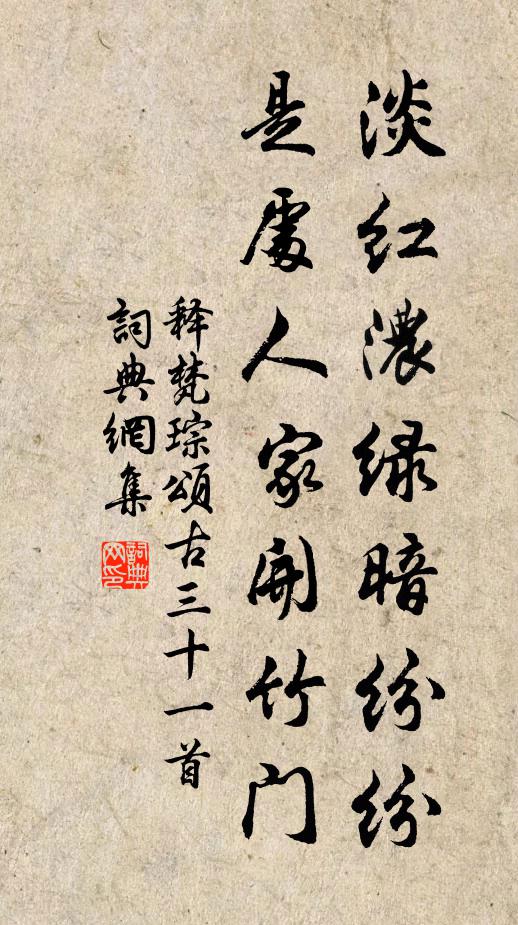 淡红濃绿暗纷纷
是處人家開竹门
释梵琮頌古三十一首
詞典網集
詞典网印